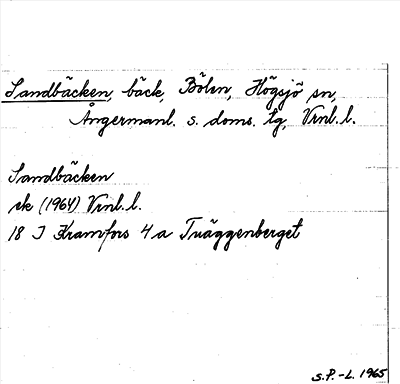 Sandbäcken, bäck, Bölen, Högsjö sn,
Ångermanl. s. doms. tg, Vrnl. l.
Sandbäcken
ek (1964) Vrnl. l.
18 I Kramfors 4 a Tväggenberget
S.P.-L. 1965